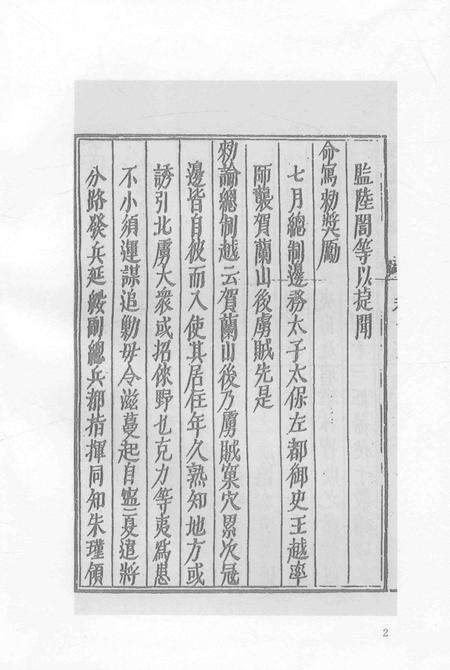 監陸誾等以捷聞
命寫勑獎勵
七月總制邊務太子太保左都御史王越率
師襲賀蘭山後虜賊先是
勑諭總制越云賀蘭山後乃虜賊窠穴累次冦
邊皆自彼而入使其居住年久熟知地方或
誘引北虜大衆或招俫野乜克力等夷爲患
不小須運謀追勦毋令滋蔓起自寧夏遣將
分路發兵延綏副總兵都指揮同知朱瑾領
2